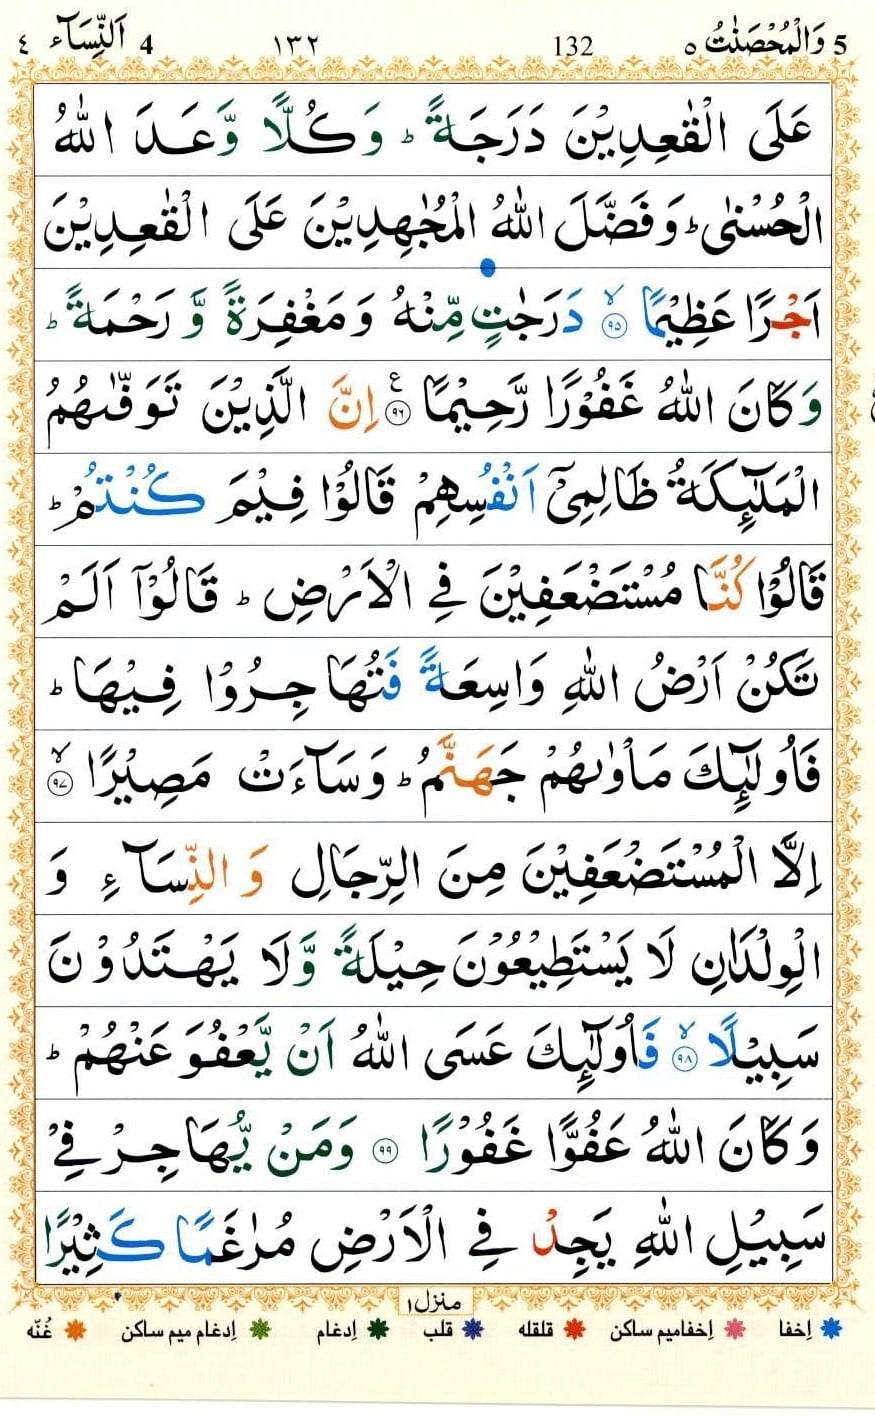 5 وَالْمُحْصَنٰتُ ٥ 132 ١٣٢ 4 اَلنِّسَآء ٤
عَلَى الْقٰعِدِيْنَ دَرَجَةً ؕ وَكُلًّا وَّعَدَ اللّٰهُ
الْحُسْنٰى ؕ وَفَضَّلَ اللّٰهُ الْمُجٰهِدِيْنَ عَلَى الْقٰعِدِيْنَ
اَجْرًا عَظِيْمًا ۙ‏ ﴿۹۵﴾ دَرَجٰتٍ مِّنْهُ وَمَغْفِرَةً وَّرَحْمَةً ؕ
وَكَانَ اللّٰهُ غَفُوْرًا رَّحِيْمًا ﴿۹۶﴾ ع اِنَّ الَّذِيْنَ تَوَفّٰٮهُمُ
الْمَلٰٓئِكَةُ ظَالِمِىْۤ اَنْفُسِهِمْ قَالُوْا فِيْمَ كُنْتُمْ ؕ
قَالُوْا كُنَّا مُسْتَضْعَفِيْنَ فِى الْاَرْضِ ؕ قَالُوْۤا اَلَمْ
تَكُنْ اَرْضُ اللّٰهِ وَاسِعَةً فَتُهَاجِرُوْا فِيْهَا ؕ
فَاُولٰٓئِكَ مَاْوٰٮهُمْ جَهَنَّمُ ؕ وَسَآءَتْ مَصِيْرًا ۙ‏ ﴿۹۷﴾
اِلَّا الْمُسْتَضْعَفِيْنَ مِنَ الرِّجَالِ وَ النِّسَآءِ وَ
الْوِلْدَانِ لَا يَسْتَطِيْعُوْنَ حِيْلَةً وَّلَا يَهْتَدُوْنَ
سَبِيْلًا ۙ‏ ﴿۹۸﴾ فَاُولٰٓئِكَ عَسَى اللّٰهُ اَنْ يَّعْفُوَ عَنْهُمْ ؕ
وَكَانَ اللّٰهُ عَفُوًّا غَفُوْرًا ﴿۹۹﴾ وَمَنْ يُّهَاجِرْ فِىْ
سَبِيْلِ اللّٰهِ يَجِدْ فِى الْاَرْضِ مُرٰغَمًا كَثِيْرًا
منزل ١
اِخفا اِخفامیم ساکن قلقله قلب اِدغام اِدغام میم ساکن غُنّه